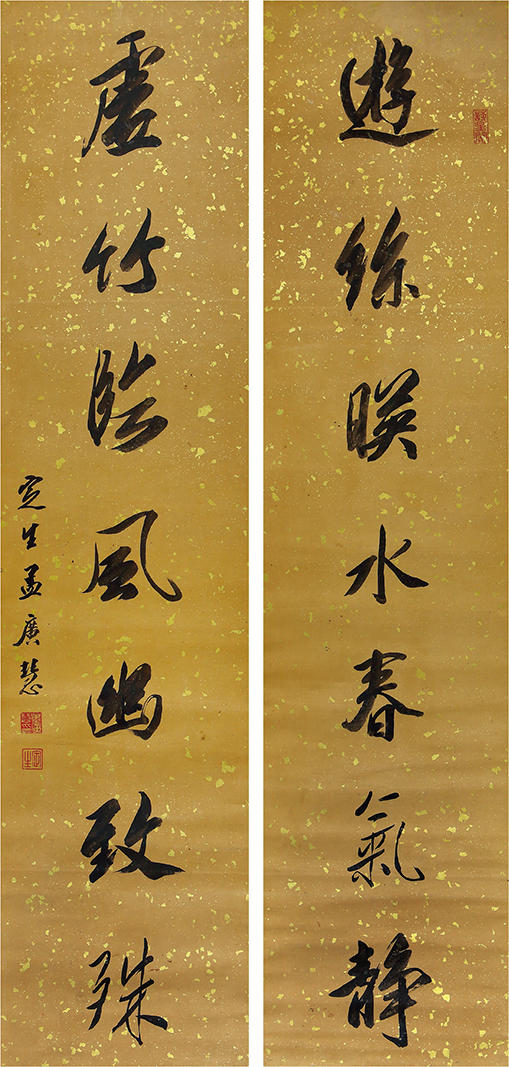 遊絲暎水春氣静
虛竹臨風幽致殊
定生孟廣慧